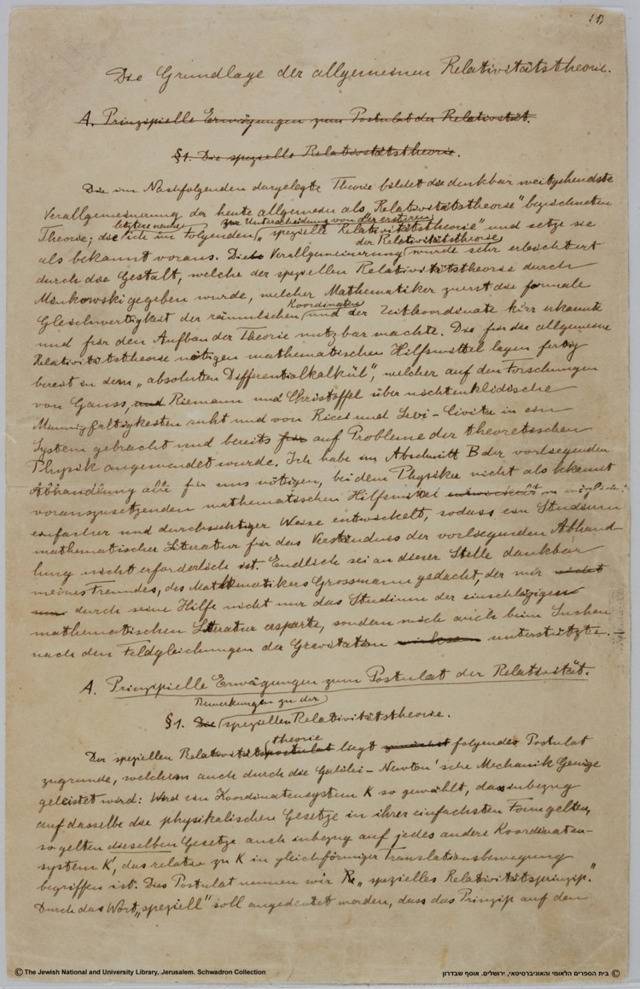 (1)
Die Grundlage der allgemeinen Relativitätstheorie.
A. Prinzipielle Erwägungen zum Postulat der Relativität.
§1. Die spezielle Relativitätstheorie.
Die im Nachfolgenden dargelegte Theorie bildet die denkbar weitgehendste
Verallgemeinerung der heute allgemein als „Relativitätstheorie" bezeichneten
letztere nenne zur Unterscheidung von der ersteren
Theorie; die ich im Folgenden „spezielle Relativitätstheorie" und setze sie
der Relativitätstheorie
als bekannt voraus. Die Verallgemeinerung wurde sehr erleichtert
durch die Gestalt, welche der speziellen Relativitätstheorie durch
Minkowski gegeben wurde, welcher Mathematiker zuerst die formale
Koordinaten
Gleichwertigkeit der räumlichen und der Zeitkoordinate klar erkannte
und für den Aufbau der Theorie nutzbar machte. Die für die allgemeine
Relativitätstheorie nötigen mathematischen Hilfsmittel lagen fertig
bereit in dem „absoluten Differentialkalkül", welcher auf den Forschungen
von Gauss, und Riemann und Christoffel über nichteuklidische
Mannigfaltigkeiten ruht und von Ricci und Levi-Civita in ein
System gebracht und bereits für auf Probleme der theoretischen
Physik angewendet wurde. Ich habe im Abschnitt B der vorliegenden
Abhandlung alle für uns nötigen, bei dem Physiker nicht als bekannt
vorauszusetzenden mathematischen Hilfsmittel in möglichst
einfacher und durchsichtiger Weise entwickelt, sodass ein Studium
mathematischer Literatur für das Verständnis der vorliegenden Abhand-
lung nicht erforderlich ist. Endlich sei an dieser Stelle dankbar
meines Freundes, des Mathematikers Grossmann gedacht, der mir nicht
nur durch seine Hilfe nicht nur das Studium der einschlägigen
mathematischen Literatur ersparte, sondern mich auch beim Suchen
nach den Feldgleichungen der Gravitation unterstützte.—
A. Prinzipielle Erwägungen zum Postulat der Relativität.
Bemerkungen zu der
§1. Die speziellen Relativitätstheorie.
theorie
Der speziellen Relativitätspostulat liegt folgendes Postulat
zugrunde, welchem auch durch die Galilei-Newton'sche Mechanik Genüge
geleistet wird: Wird ein Koordinatensystem K so gewählt, dass inbezug
auf dasselbe die physikalischen Gesetze in ihrer einfachsten Form gelten,
so gelten dieselben Gesetze auch inbezug auf jedes andere Koordinaten-
system K', das relativ zu K in gleichförmiger Translationsbewegung
begriffen ist. Das Postulat nennen wir „spezielles Relativitätsprinzip."
Durch das Wort „speziell" soll angedeutet werden, dass das Prinzip auf den
© The Jewish National and University Library, Jerusalem. Schwadron Collection
© בית הספרים הלאומי והאוניברסיטאי, ירושלים. אוסף שבדרון